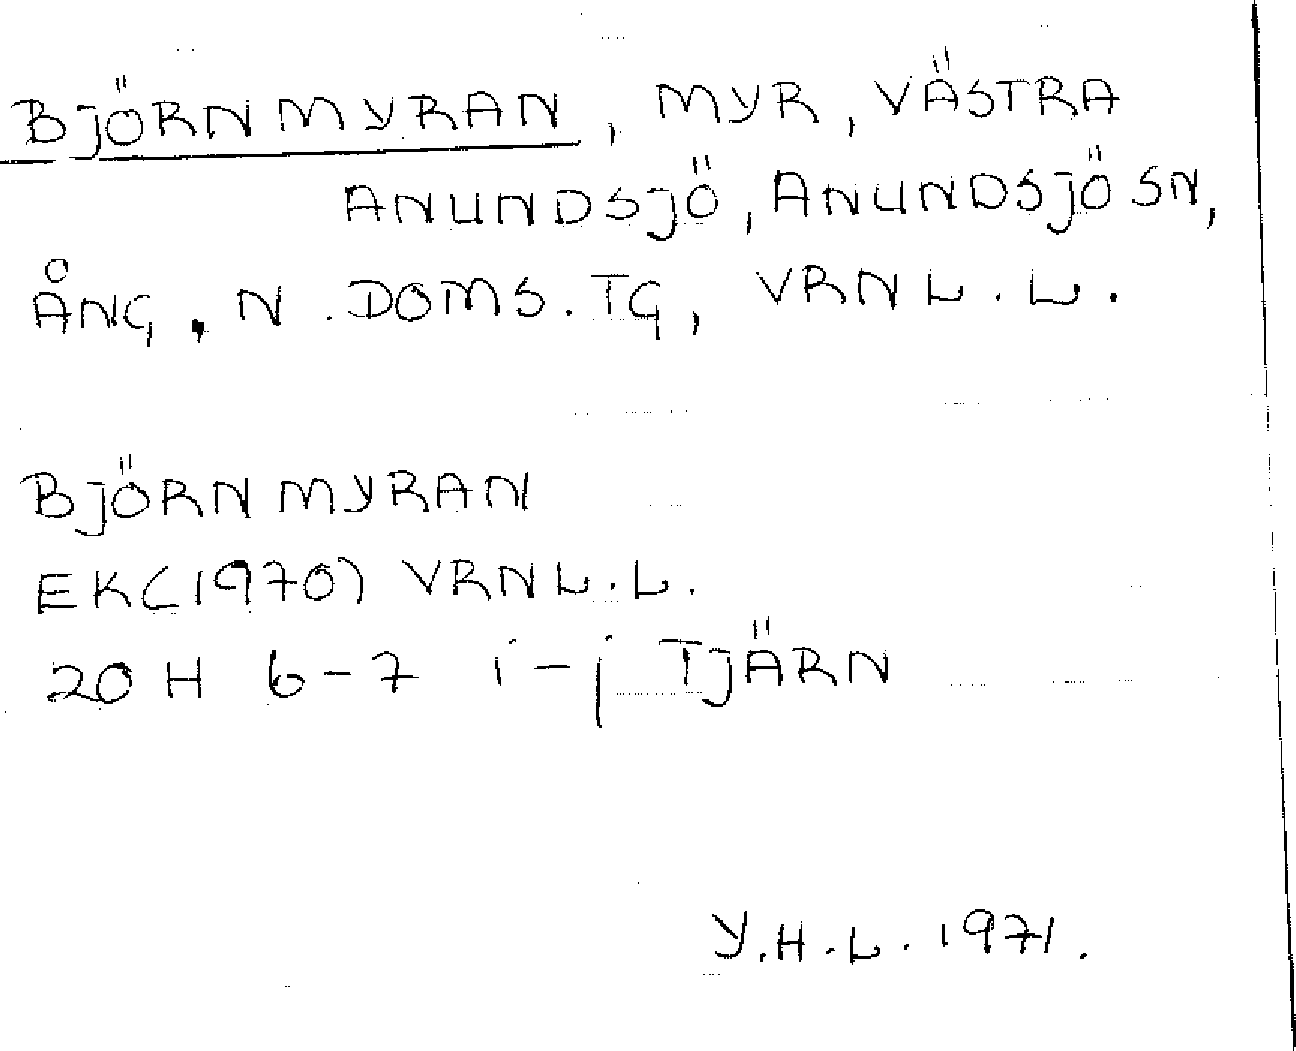 BJÖRNMYRAN, MYR, VÄSTRA
ANUNDSJÖ, ANUNDSJÖ SN,
ÅNG. N. DOMS. TG, VRNL.L.
BJÖRNMYRAN
EK(1970) VRNL.L.
20 H 6-7 i-j TJÄRN
Y.H.L. 1971.